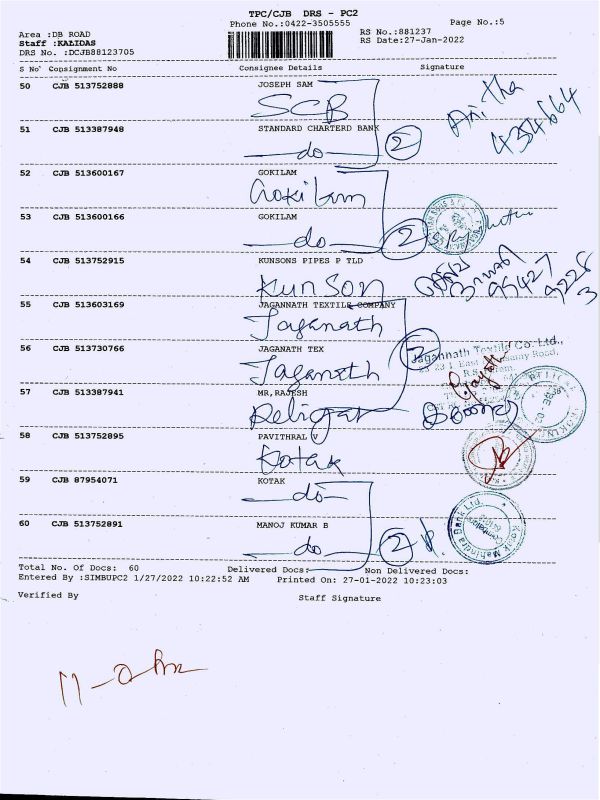 TPC/CJB DRS - PC2
Phone No.:0422-3505555
Page No.:5
Area :DB ROAD
Staff :KALIDAS
DRS No. :DCJB88123705
RS No.:881237
RS Date:27-Jan-2022
S No Consignment No Consignee Details Signature
50 CJB 513752888 JOSEPH SAM
SCB
Anitha
434664
51 CJB 513387948 STANDARD CHARTERD BANK
do 2
52 CJB 513600167 GOKILAM
Gokilam
53 CJB 513600166 GOKILAM
do 2
54 CJB 513752915 KUNSONS PIPES P TLD
KunSon
95427
55 CJB 513603169 JAGANNATH TEXTILE COMPANY
Jaganath
56 CJB 513730766 JAGANATH TEX
Jaganath 2
Jagannath Textile Co. Ltd.,
57 CJB 513387941 MR,RAJESH
Religar
58 CJB 513752895 PAVITHRAL V
Kotak
59 CJB 87954071 KOTAK
do
60 CJB 513752891 MANOJ KUMAR B
do 2
Kotak Mahindra Bank Ltd.
Total No. Of Docs: 60 Delivered Docs: Non Delivered Docs:
Entered By :SIMBUPC2 1/27/2022 10:22:52 AM Printed On: 27-01-2022 10:23:03
Verified By Staff Signature